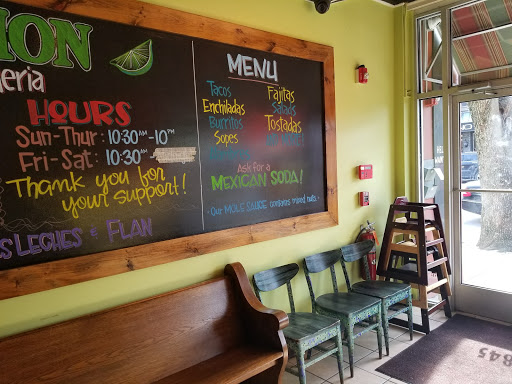 MON
eria
HOURS
Sun-Thur: 10:30AM-10PM
Fri-Sat: 10:30AM-
Thank you for
your support!
S LECHES & FLAN
MENU
Tacos Fajitas
Enchiladas Salads
Burritos Tostadas
Sopes
Ask for a
MEXICAN SODA!
Our MOLE SAUCE contains mixed nuts
845